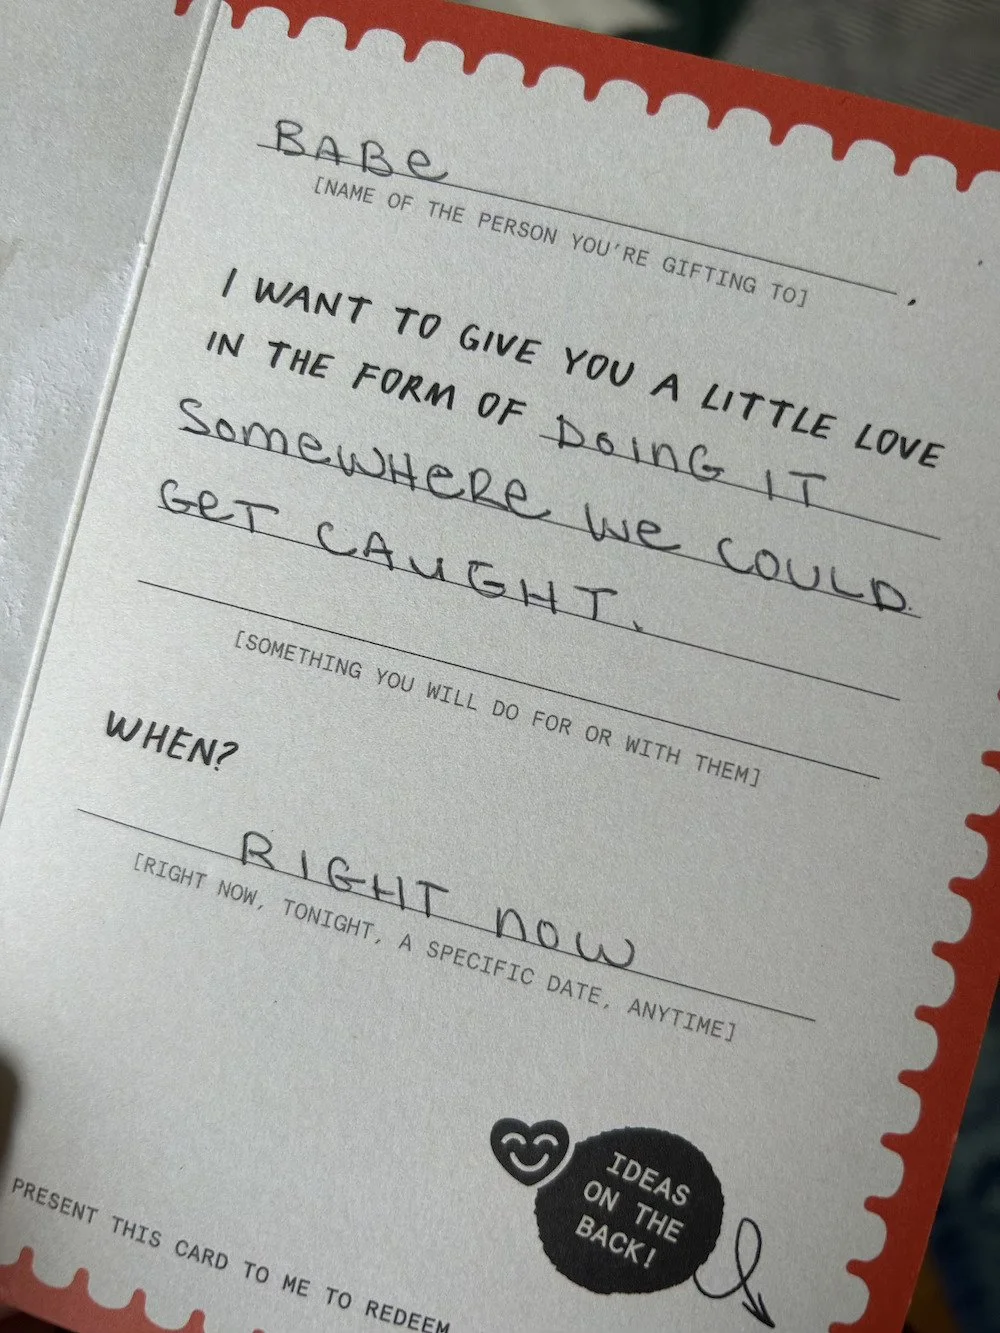 BABe.
[NAME OF THE PERSON YOU'RE GIFTING TO]
I WANT TO GIVE YOU A LITTLE LOVE
IN THE FORM OF DOING IT
SomeWHeRe We COULD
GeT CAUGHT.
[SOMETHING YOU WILL DO FOR OR WITH THEM]
WHEN?
RIGHT NOW
[RIGHT NOW, TONIGHT, A SPECIFIC DATE, ANYTIME]
IDEAS
ON THE
BACK!
PRESENT THIS CARD TO ME TO REDEEM